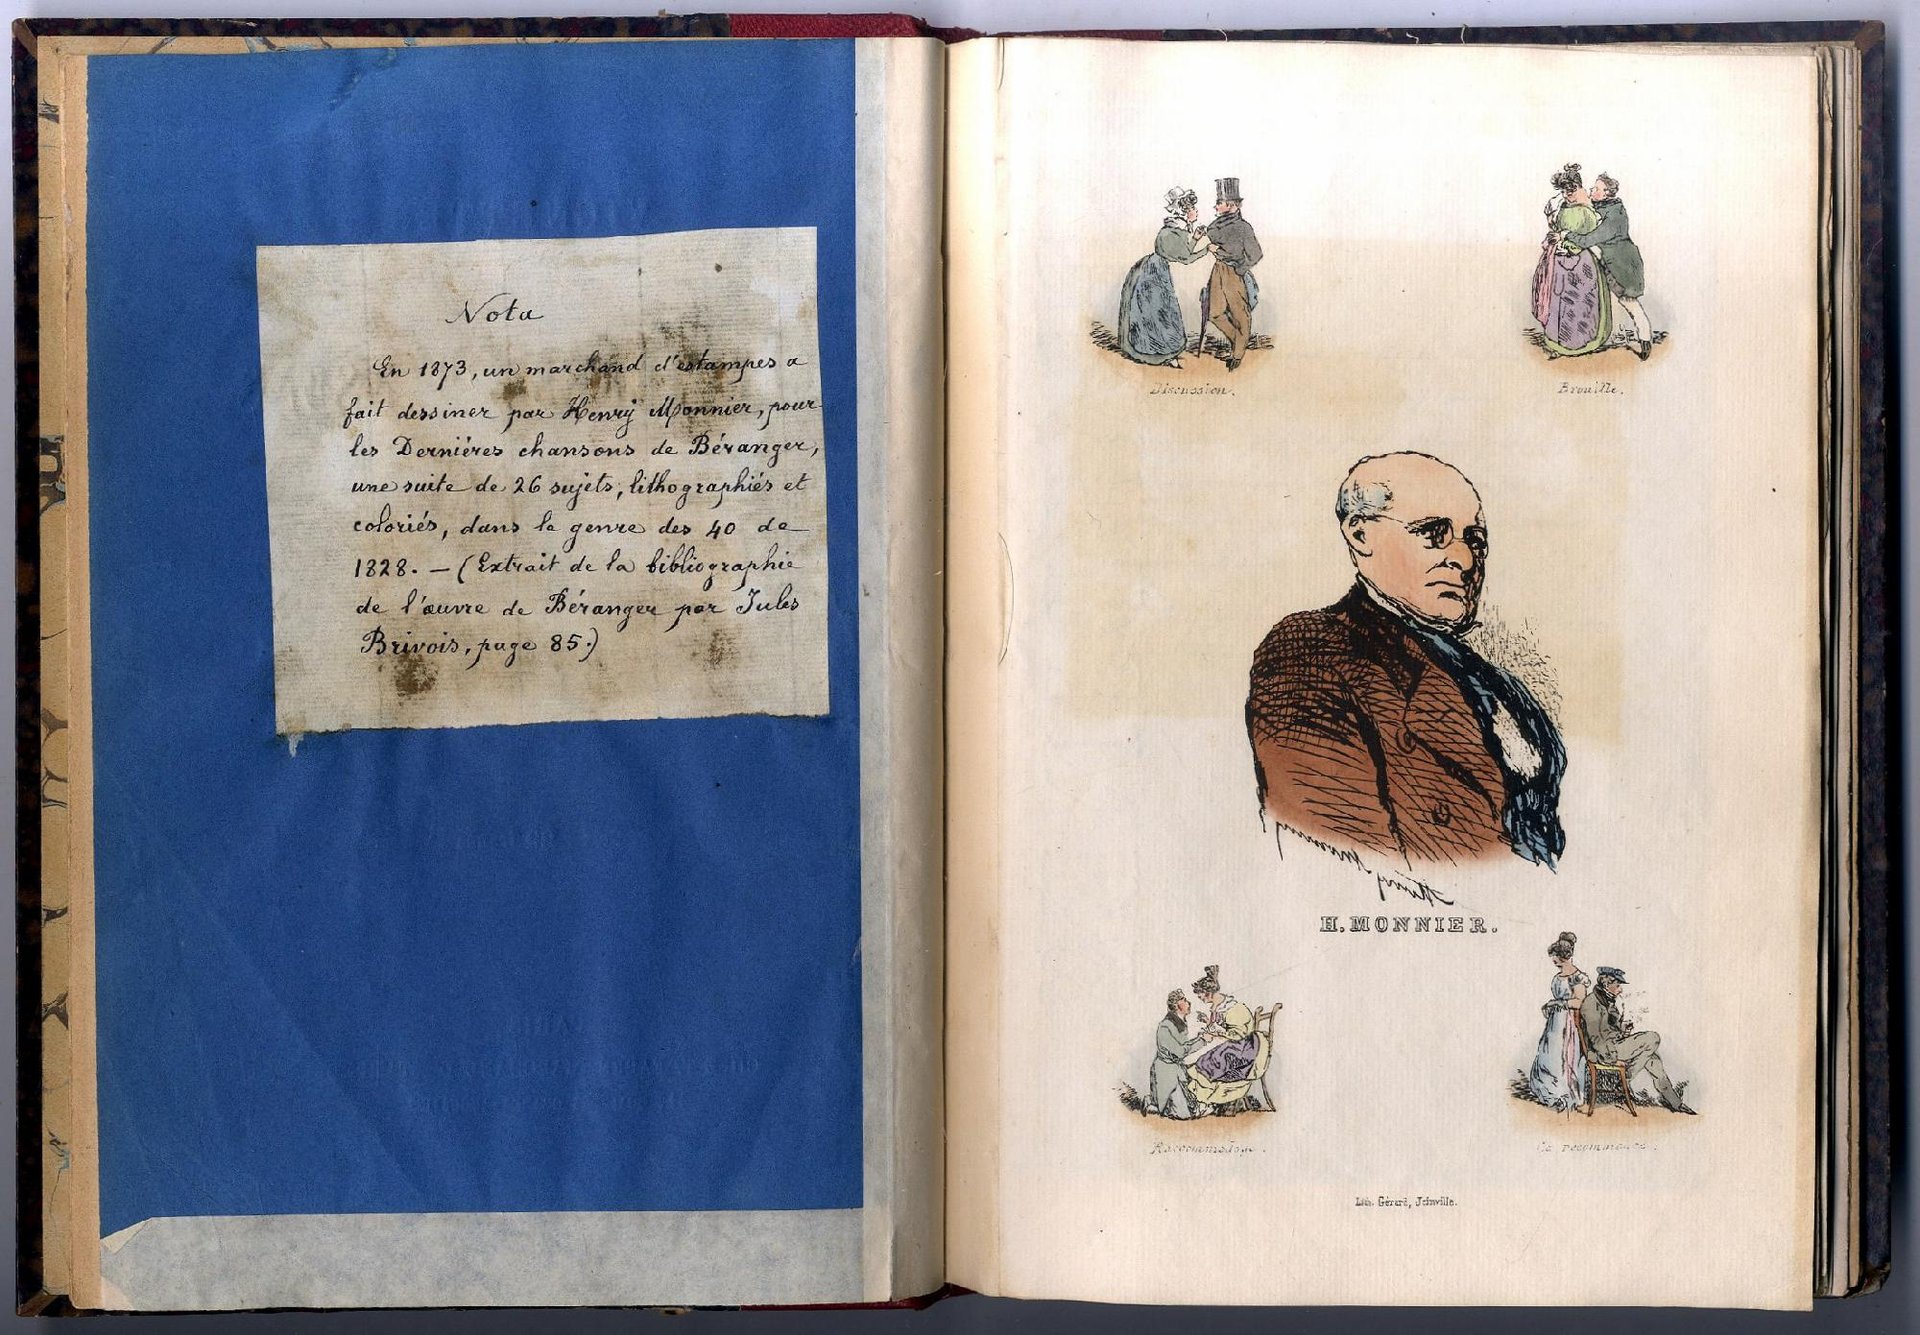 Nota
En 1873, un marchand d'estampes a
fait dessiner par Henry Monnier, pour
les Dernières chansons de Béranger,
une suite de 26 sujets, lithographiés et
coloriés, dans le genre des 40 de
1828. — (Extrait de la bibliographie
de l'œuvre de Béranger par Jules
Brivois, page 85.)
Discussion.
Brouille.
Henry Monnier
H. MONNIER.
Raccommodage.
Lith. Gérard, Joinville.